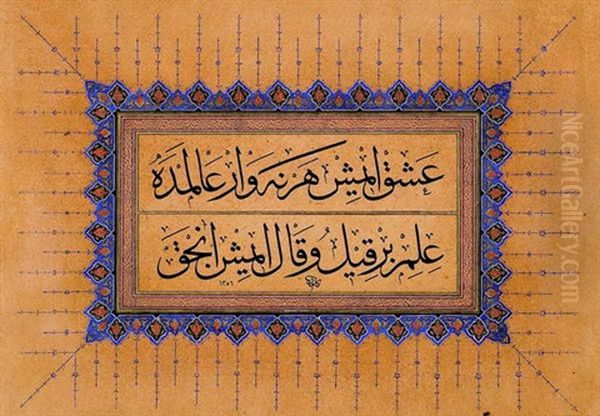 عشق ایمیش هر نه وار عالمده
علم بر قیل و قال ایمیش انجق
١٣٥٦
NiceArtGallery.com